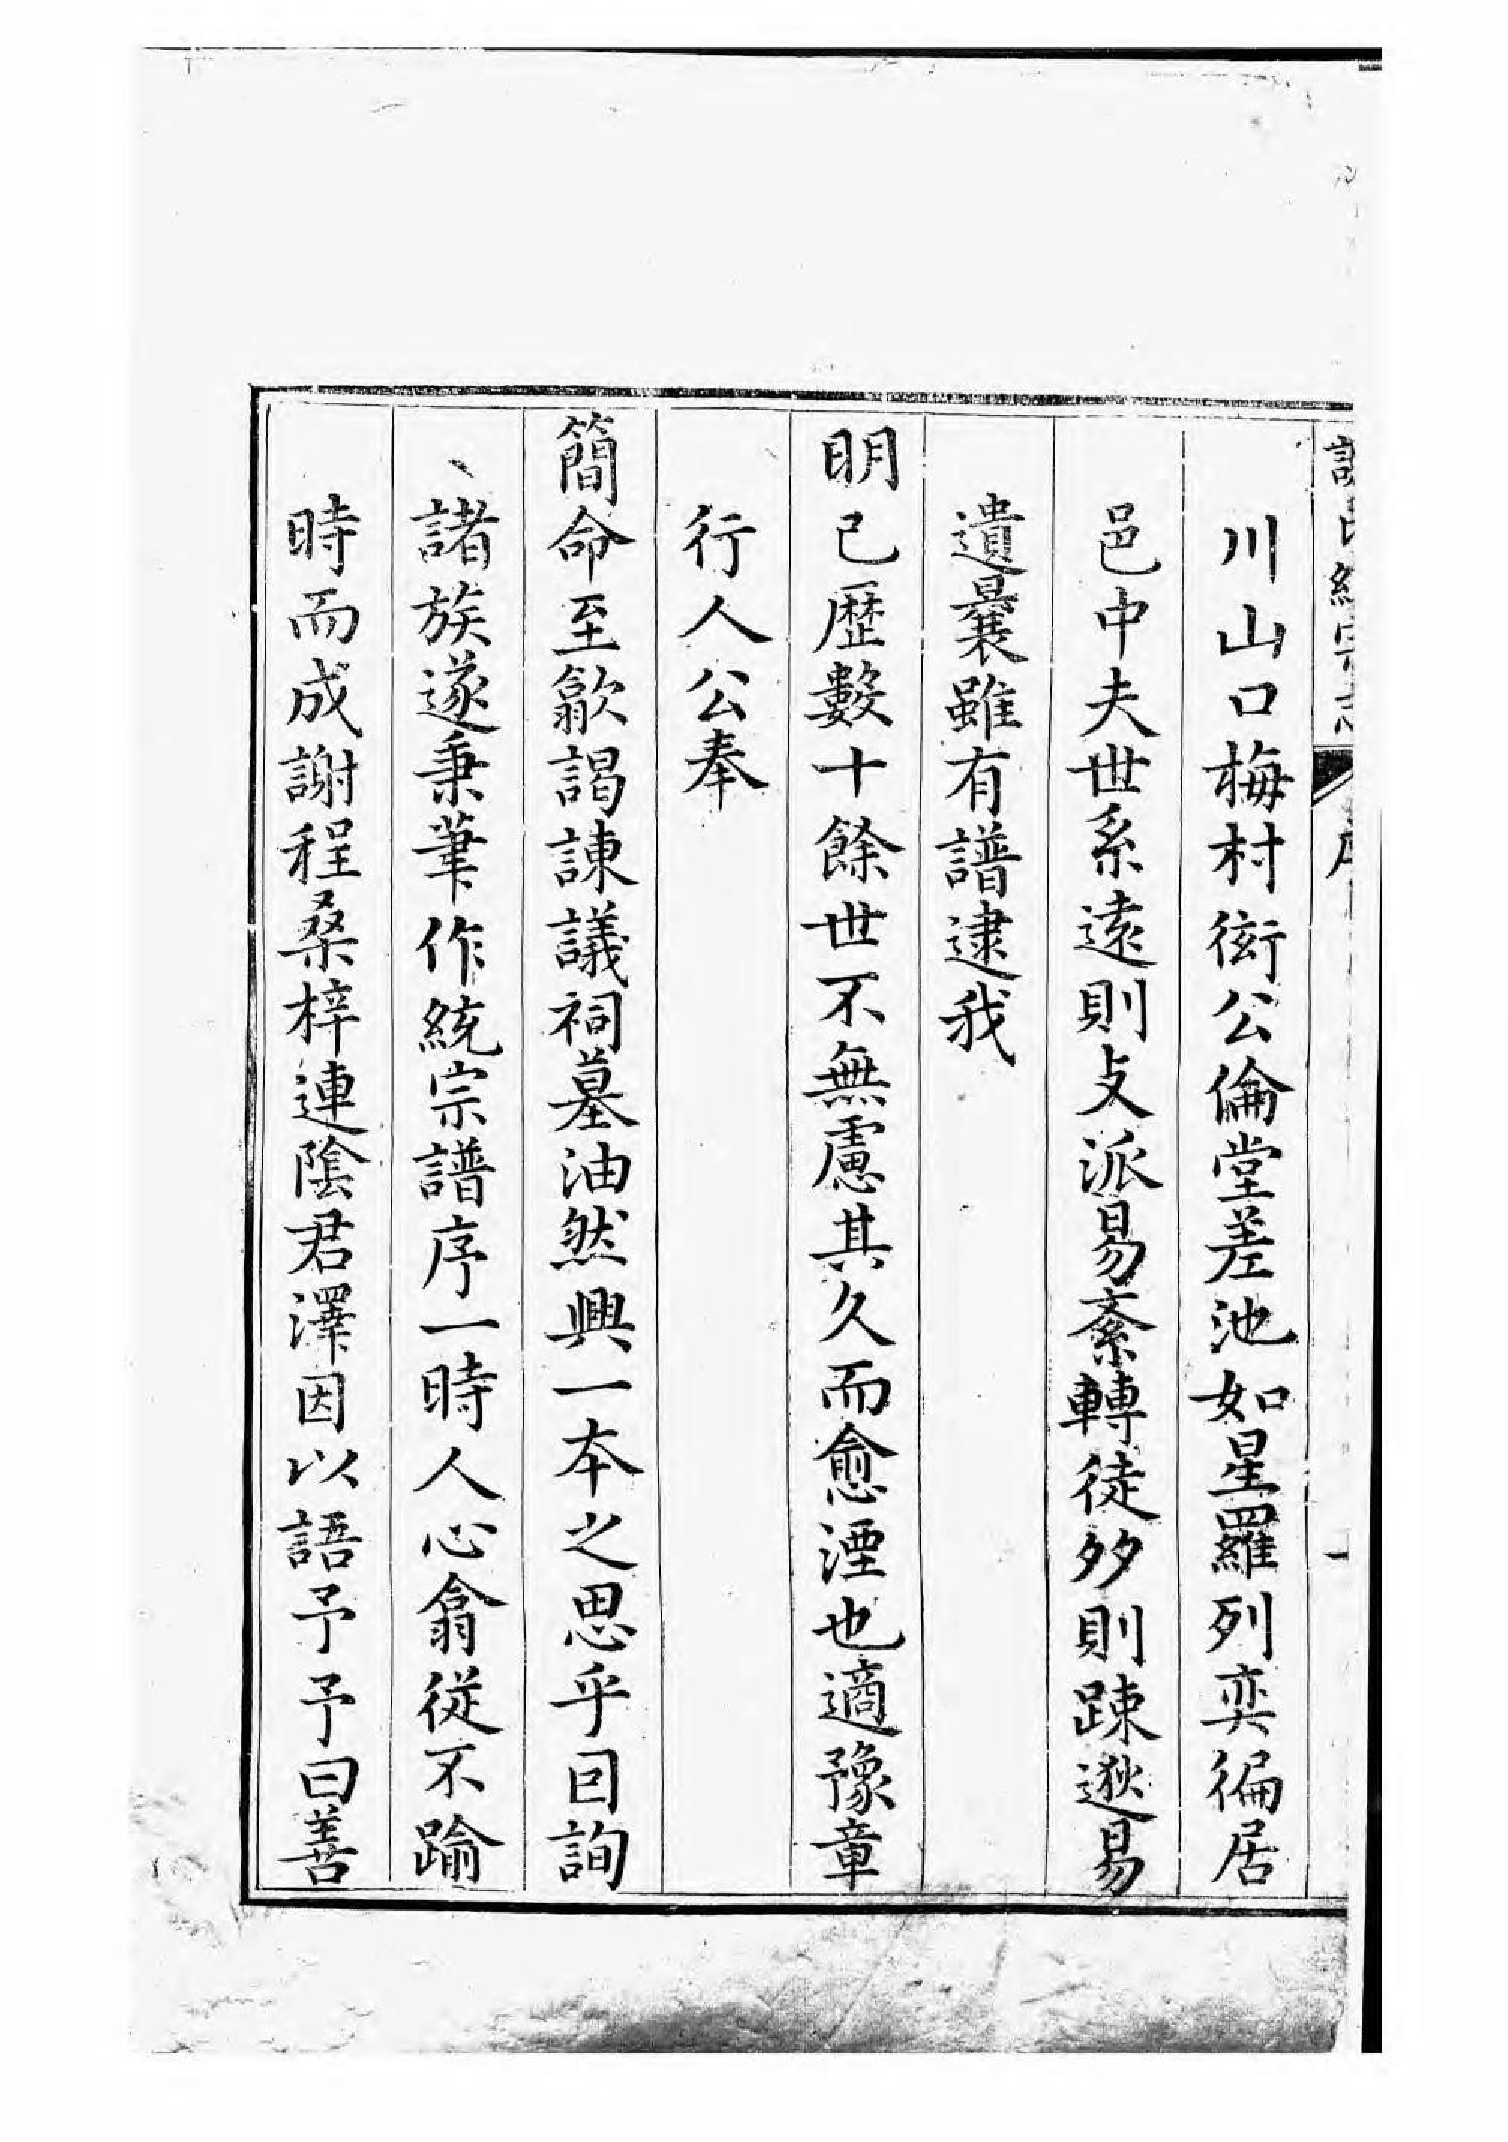 川山口梅村衙公倫堂差池如星羅列奕徧居
邑中夫世系遠則支派易紊轉徙多則踈逖易
遺曩雖有譜逮我
明已歷數十餘世不無慮其久而愈湮也適豫章
行人公奉
簡命至歙謁諫議祠墓油然興一本之思乎囙詢
諸族遂秉筆作統宗譜序一時人心翕從不踰
時而成謝程桑梓連陰君澤因以語予予曰善